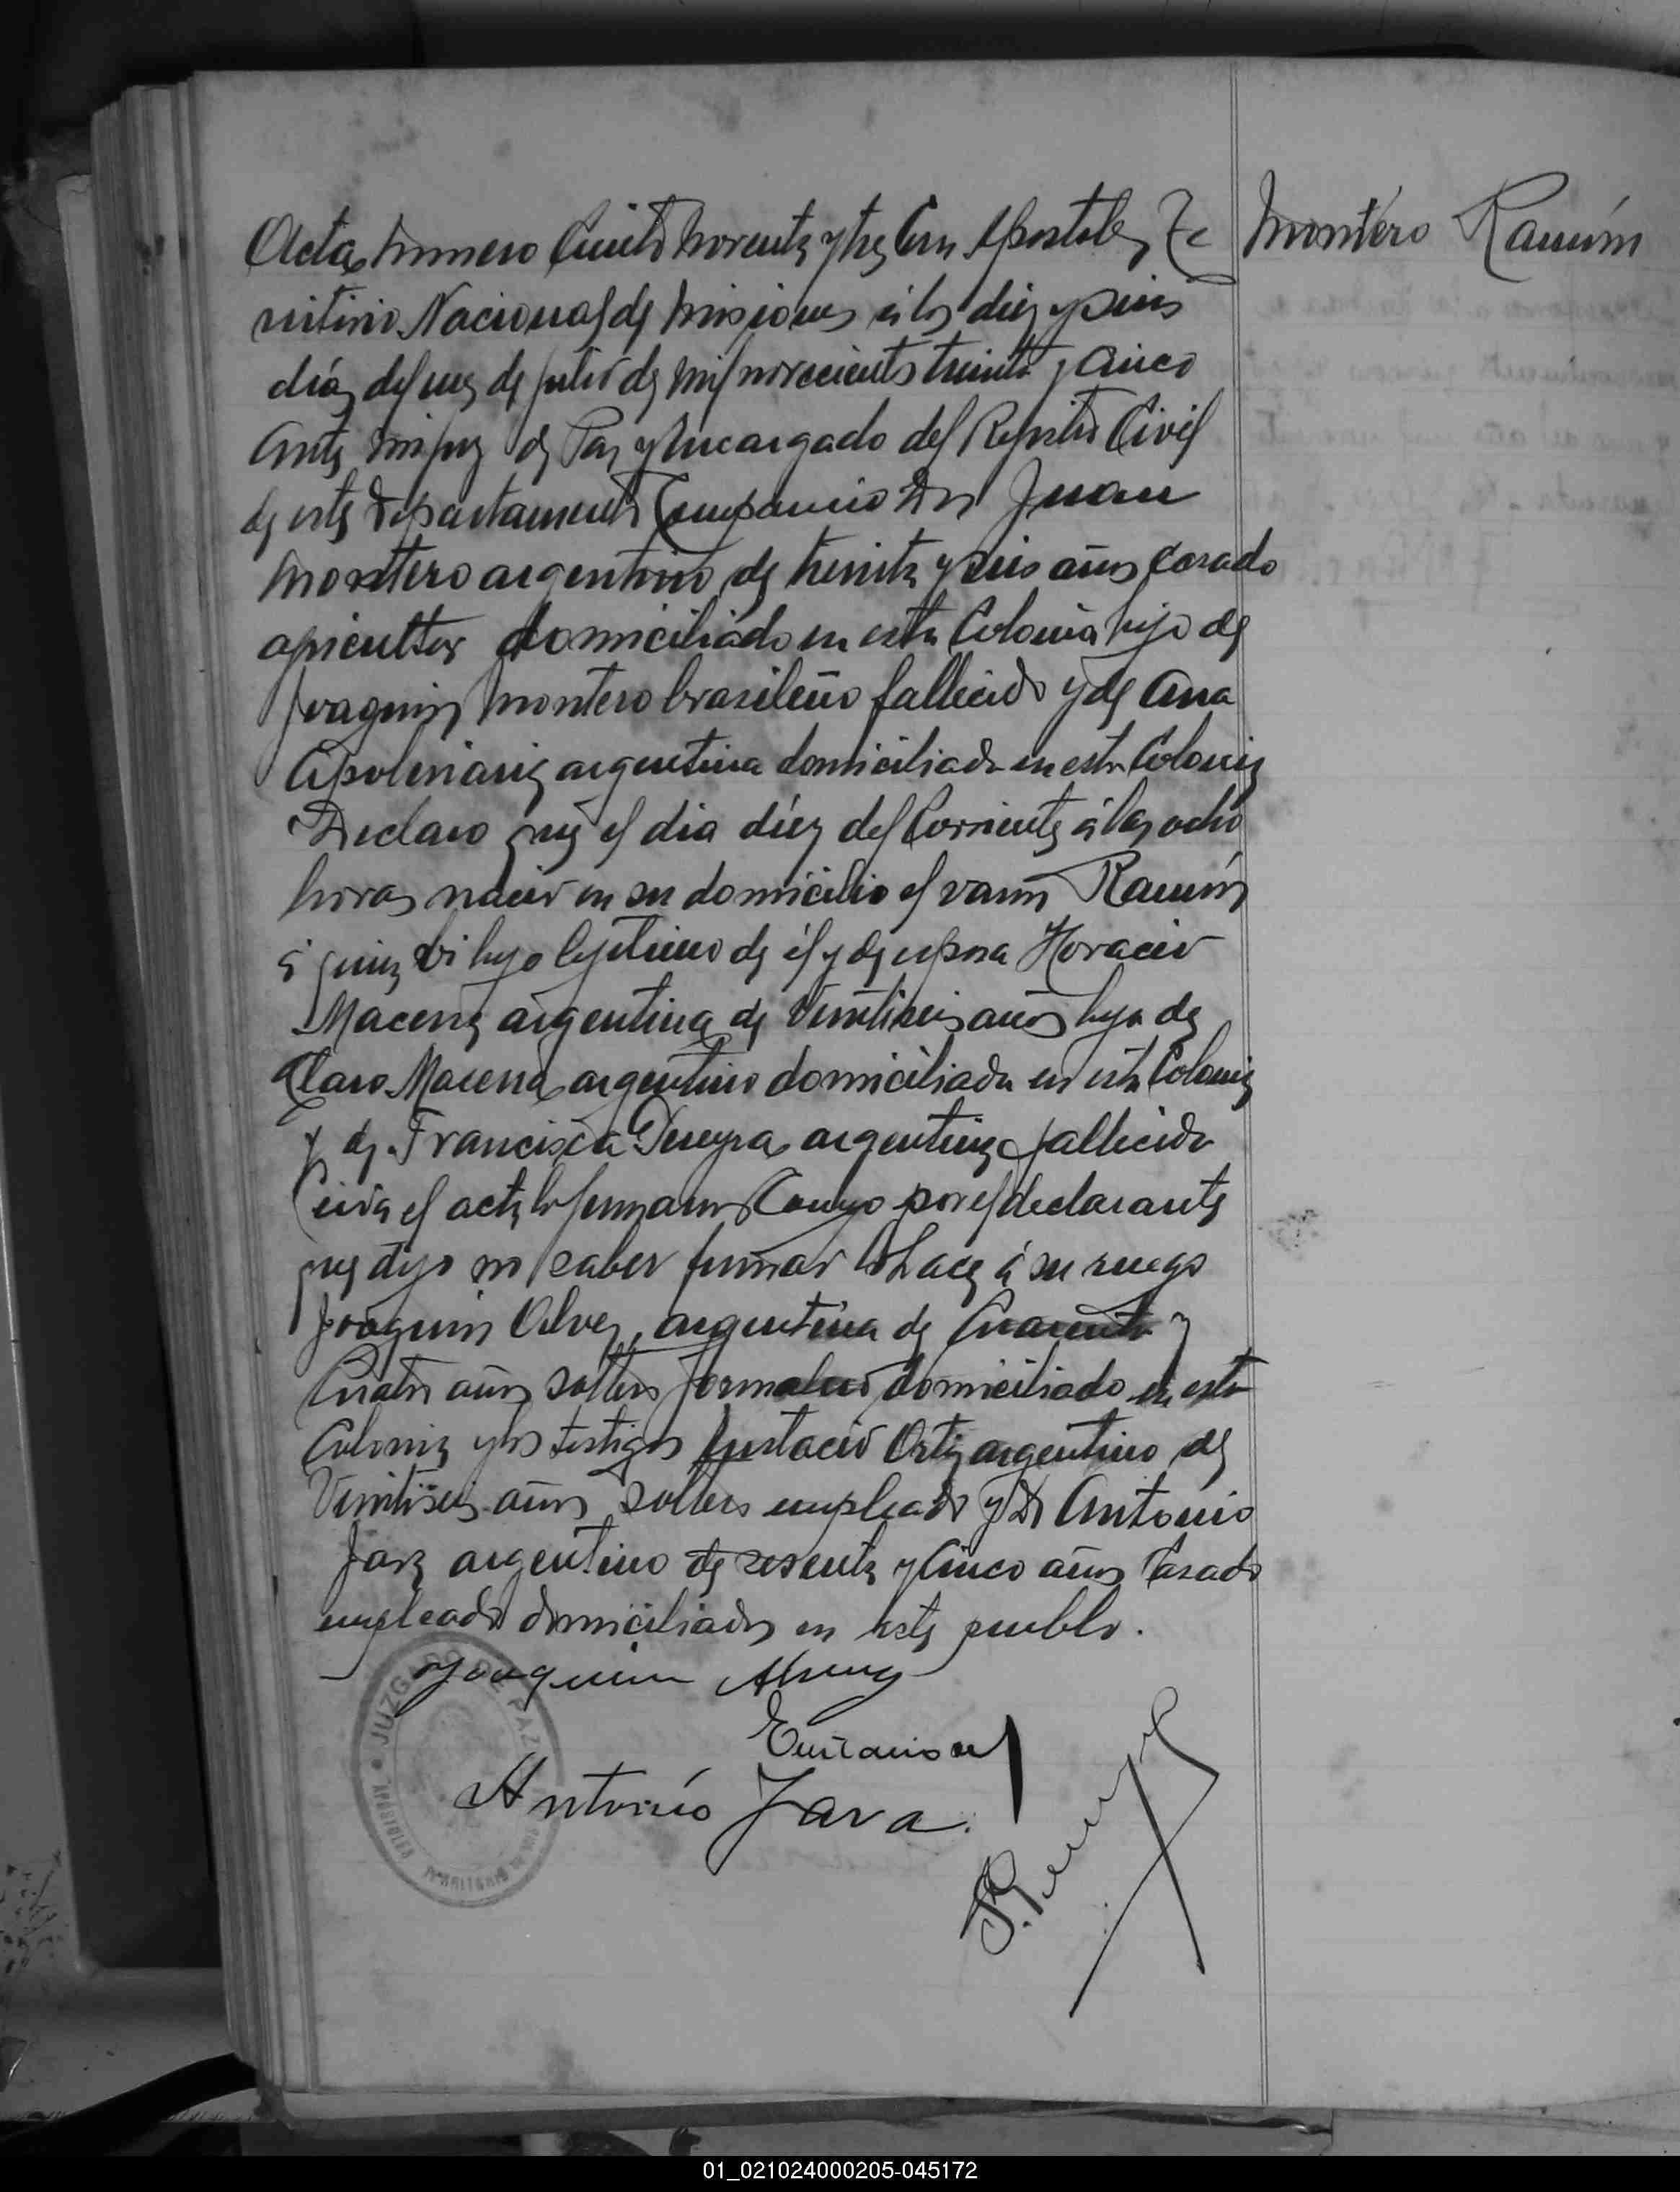 Acta numero Ciento noventa y tres En Apostoles, Te
rritorio Nacional de Misiones á los diez y seis
días del mes de Julio de mil novecientos treinta y cinco
Ante mi Juez de Paz y Encargado del Registro Civil
de este Departamento Comparecio Don Juan
Montero argentino, de treinta y seis años Casado
agricultor domiciliado en esta Colonia hijo de
Joaquin Montero brasileño fallecido y de Ana
Apolinaria argentina domiciliada en esta Colonia
Declaro que el dia diez del Corriente á las ocho
horas nacio en su domicilio el varon Ramón
á quien vi hijo legitimo de el y de esposa Horacio
Macena argentina de veintiseis años hija de
Claro Macena argentino domiciliado en esta Colonia
y de Francisca Pereyra argentina fallecida
Leida el acta la firmaron Conmigo por el declarante
que dijo no saber firmar lo hace á su ruego
Joaquin Alvez, argentina de Cuarenta y
Cuatro años soltero Jornalero domiciliado en esta
Colonia y los testigos Eustacio Ortiz argentino de
Veintiseis años soltero empleado y Don Antonio
Jara argentino de sesenta y Cinco años Casado
empleado domiciliados en este pueblo.
Joaquin
Antonio Jara.
Montero Ramón
JUZGADO DE PAZ
APOSTOLES
01_021024000205-045172